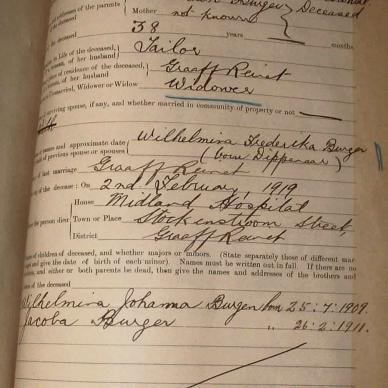 of the parents of the
Mother not known } Deceased
the deceased 38 years months
in Life of the deceased, Tailor
of her husband
of residence of the deceased, Graaff Reinet
of her husband
Widower or Widow Widower
surviving spouse, if any, and whether married in community of property or not
names and approximate date Wilhelmina Frederika Burger
of previous spouse or spouses (born Dippenaar)
of last marriage Graaff Reinet
of the decease : On 2nd February, 1919
House Midland Hospital
the person died Town or Place Stockenstroom Street
District Graaff Reinet
of children of deceased, and whether majors or minors. (State separately those of different mar
and give the date of birth of each minor). Names must be written out in full. If there are no
and either or both parents be dead, then give the names and addresses of the brothers and
of the deceased
Wilhelmina Johanna Burger born 25:7:1909.
Jacoba Burger " 26:2:1911.